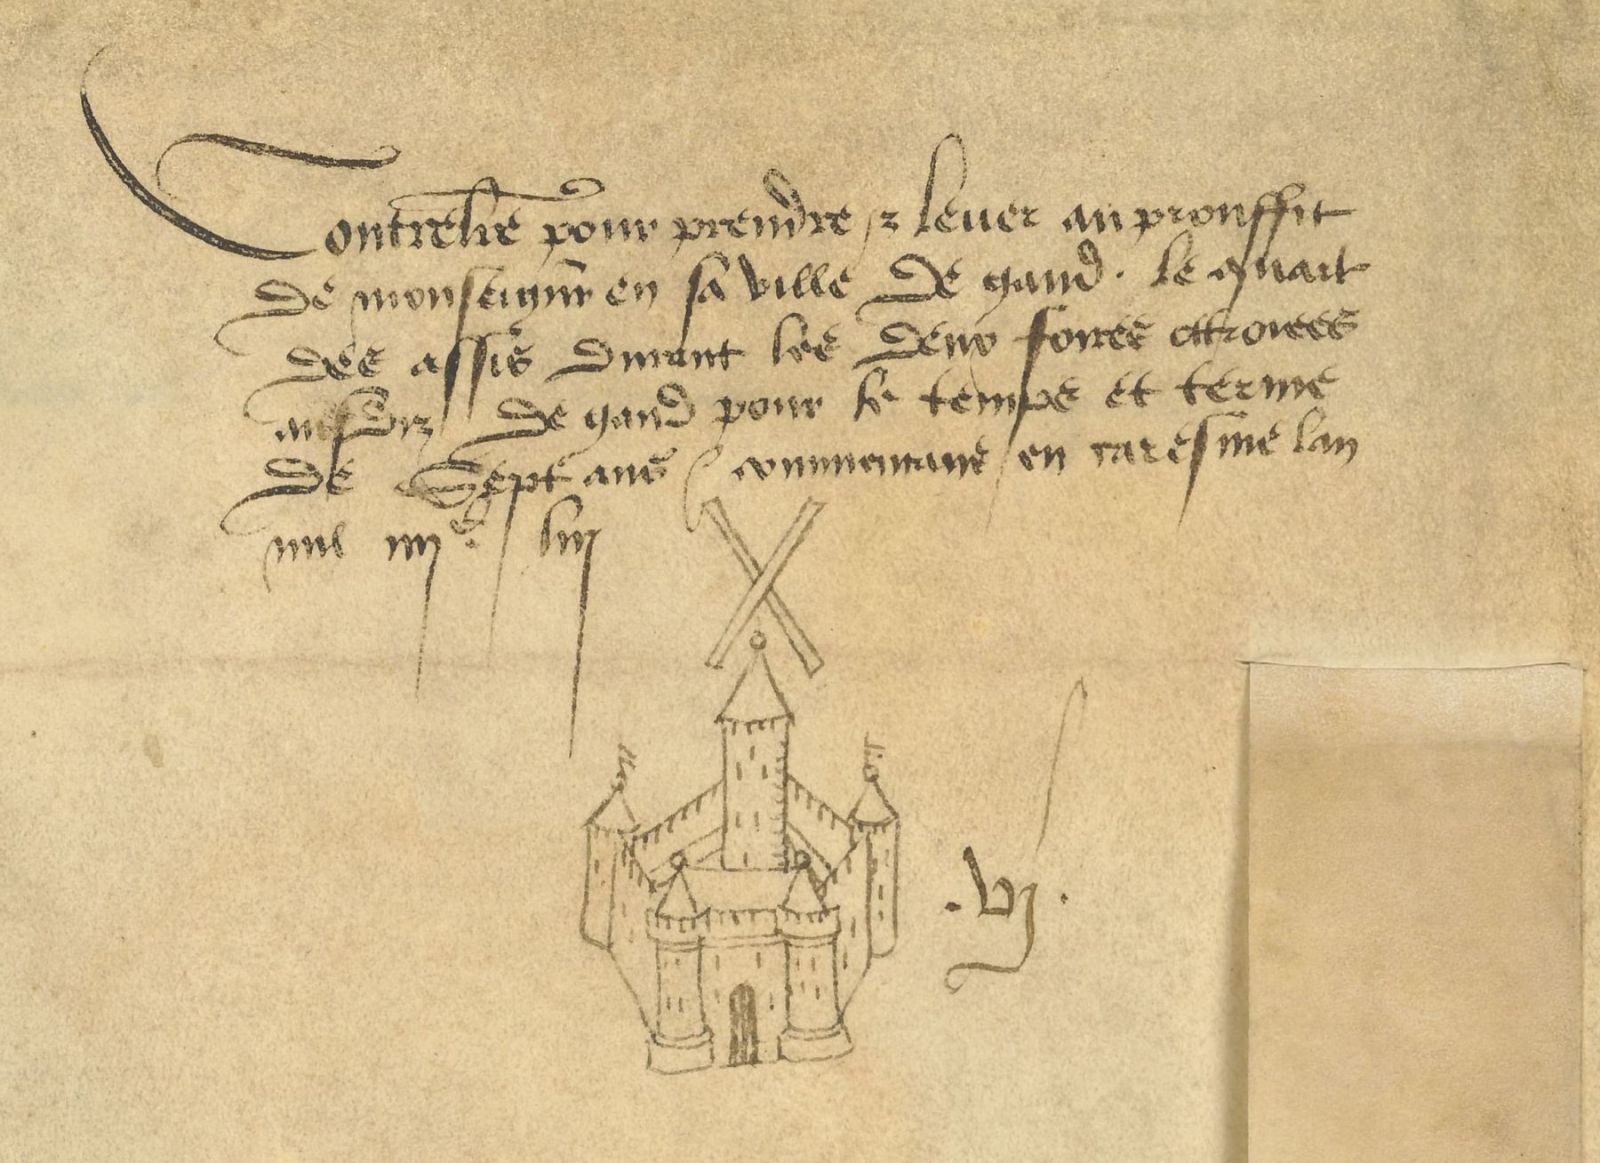 Contrel're pour prendre & lever au prouffit
de monseign'r en sa ville de gand . le quart
des assis durant les deux foires ottroiees
ausdiz de gand pour le temps et terme
de Sept ans / commencans en caresme lan
mil iiij c . liij
. vj .